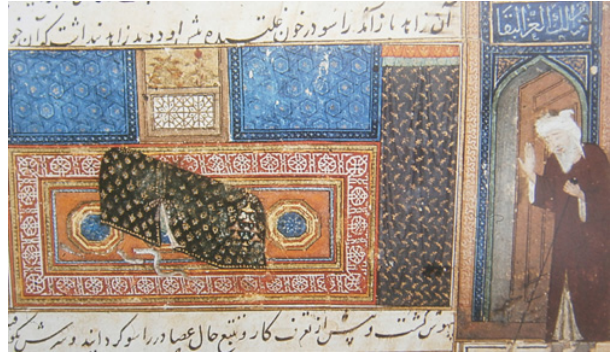 آن زاهد باز آمد راسو در خون غلتیده پیش او دوید زاهد پنداشت که آن
گشت و پیش از تعرف کار و تتبع حال عصا در راسو گردانید و سرش